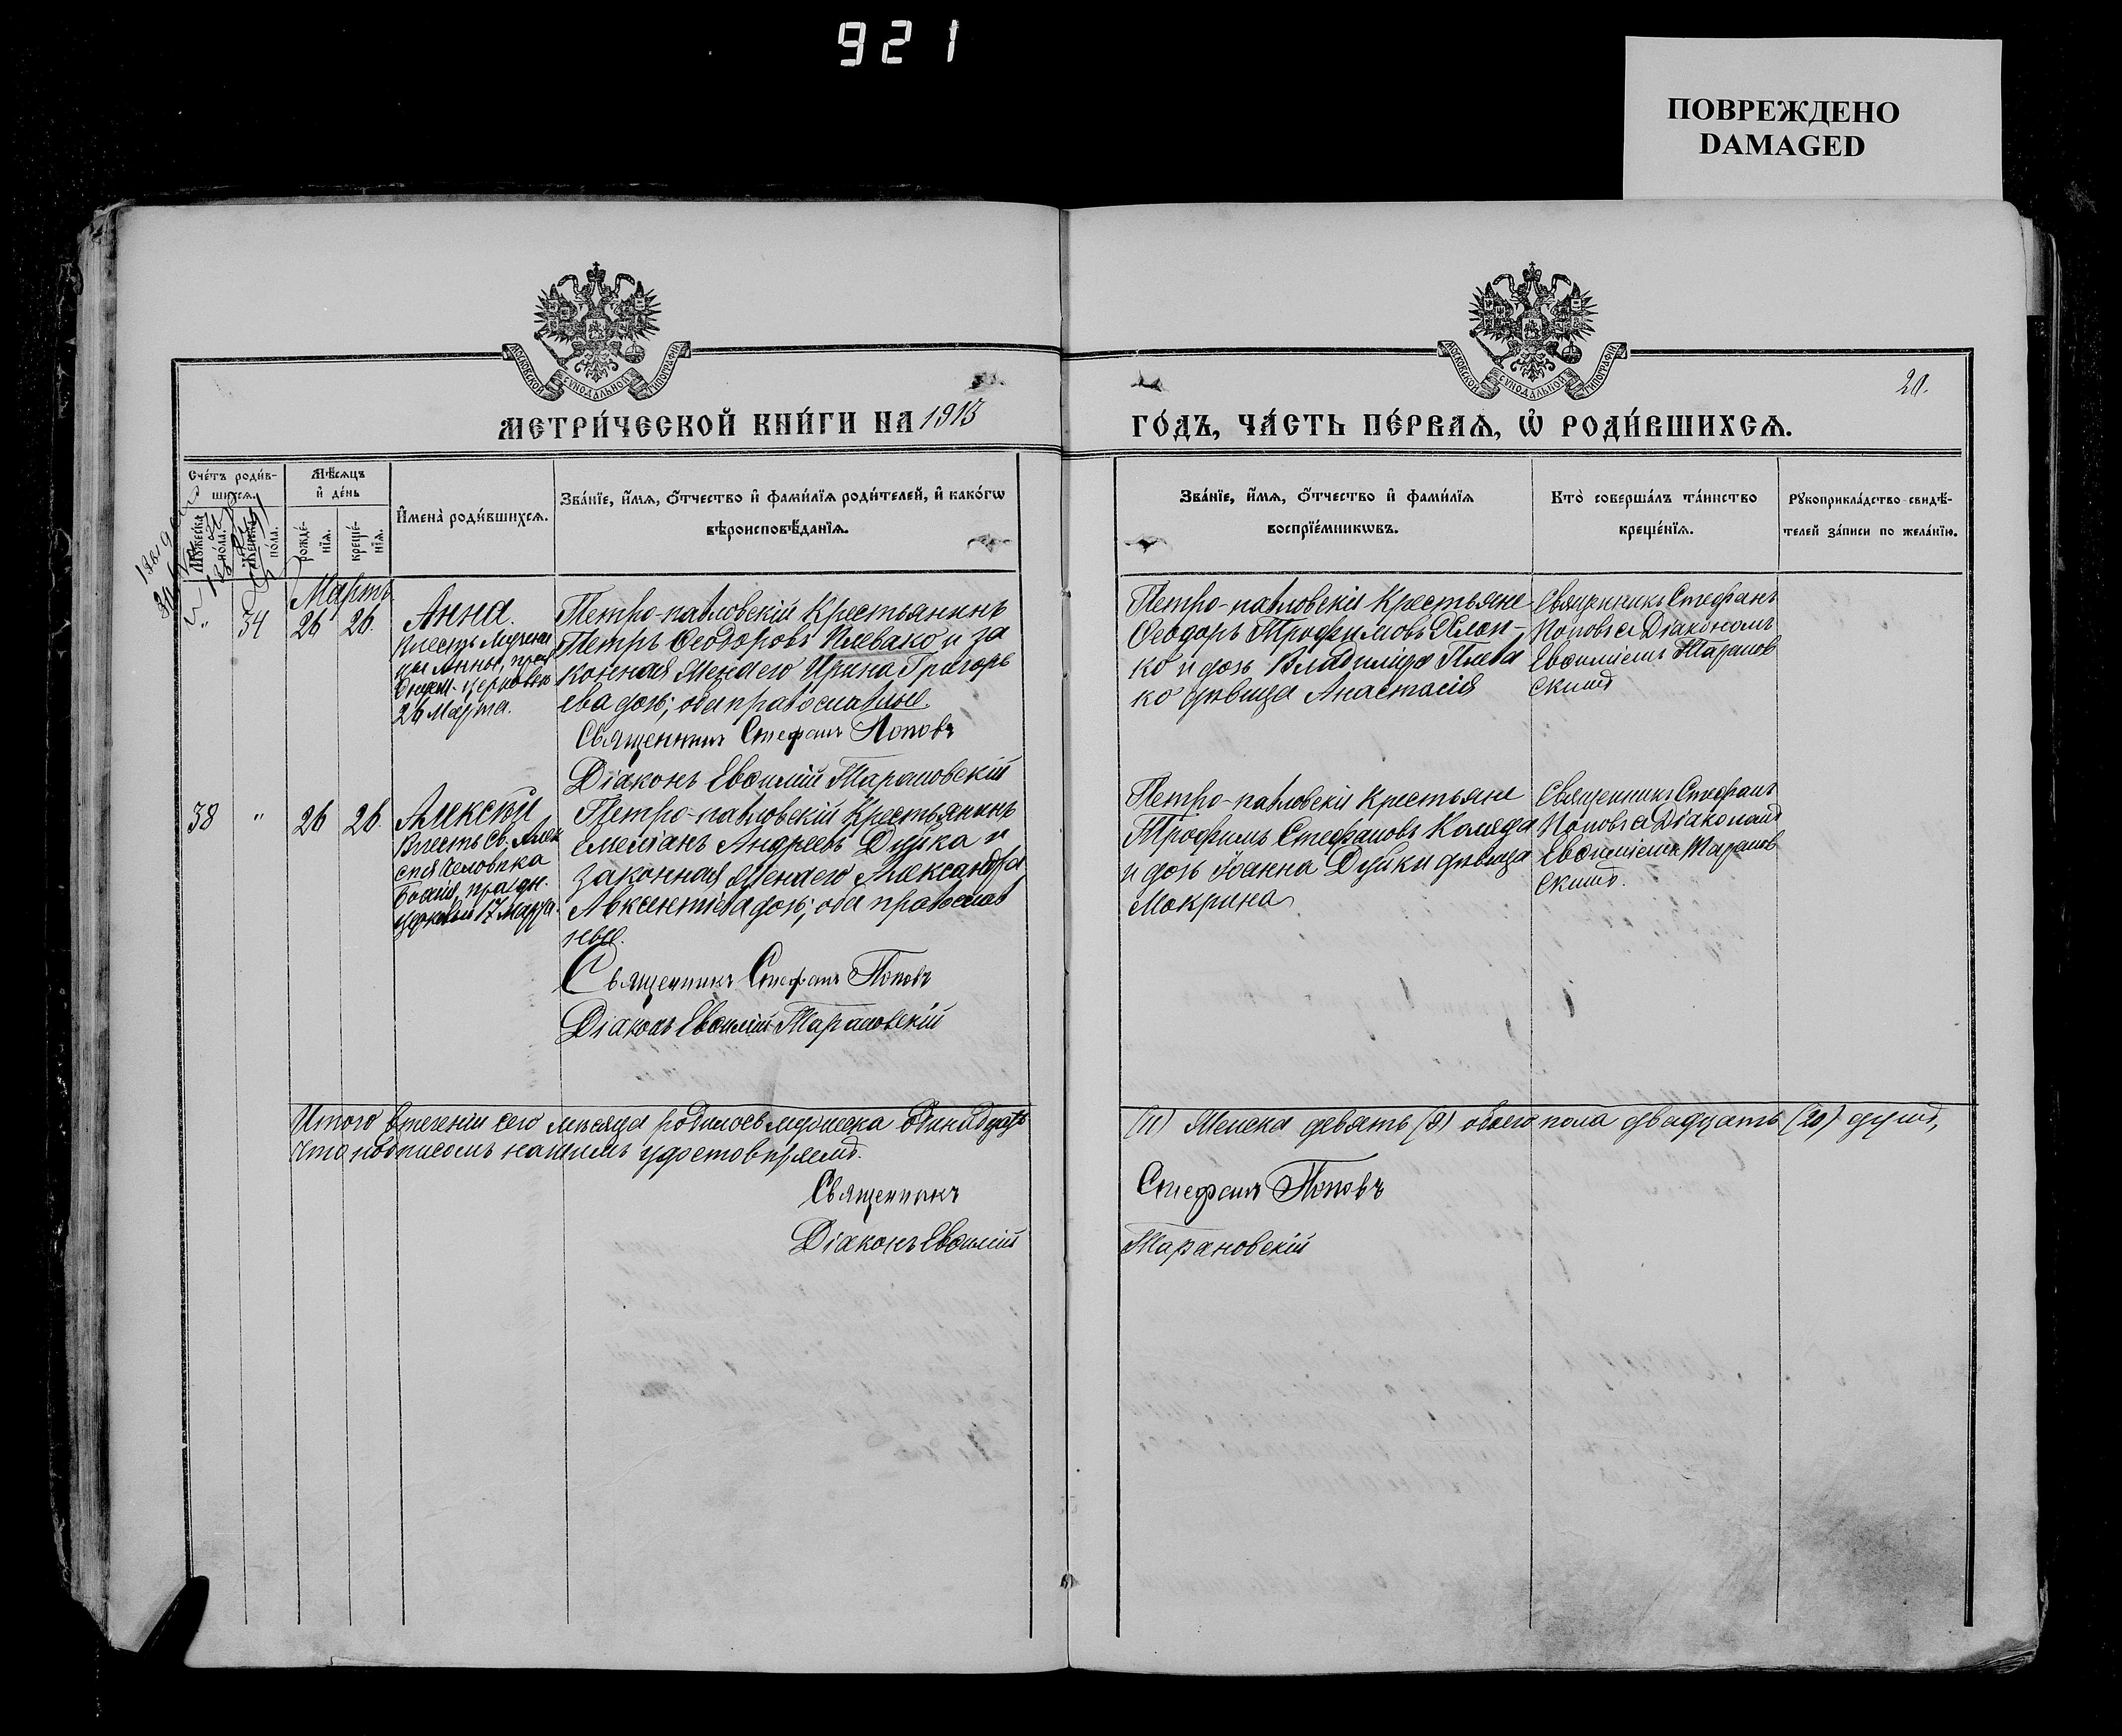 921
ПОВРЕЖДЕНО
DAMAGED
МОСКОВСКОЙ СУНОДАЛЬНОЙ ТИПОГРАФІИ
МОСКОВСКОЙ СУНОДАЛЬНОЙ ТИПОГРАФІИ
20.
МЕТРИ́ЧЕСКОЙ КНИ́ГИ НА 1913
ГО́ДЪ, ЧА́СТЬ ПЕ́РВАѦ, Ѽ РОДИ́ВШИХСѦ.
Сче́тъ роди́в-
шихсѧ.
Мꙋжеска
пола.
Женска
по́ла.
Мѣ́сѧцъ
и҆ де́нь
рожде́-
нїѧ.
креще́-
нїѧ.
И҆мена̀ роди́вшихсѧ.
Зва́нїе, и҆́мѧ, ѻ҆́тчество и҆ фами́лїѧ роди́телей, и҆ како́гѡ
вѣроисповѣ́данїѧ.
Зва́нїе, и҆́мѧ, ѻ҆́тчество и҆ фами́лїѧ
воспрїе́мникѡвъ.
Кто̀ соверша́лъ та́инство
креще́нїѧ.
Рꙋкоприкла́дство свидѣ́-
телей за́писи по жела́нїю.
Мартъ
" 34 26 26.
Анна.
Вчесть Мучени
цы Анны, праз
днуем. церковью
26 Марта.
Петро-павловскій Крестьянинъ
Петръ Ѳеодоровъ Плевако и за
конная жена его Ирина Григорь
ева дочь; оба православные.
Священникъ Стефанъ Поповъ
Діаконъ Евѳимій Тарановскій
Петро-павловскіе Крестьяне
Ѳеодоръ Трофимовъ Хлоп-
ко и дочь Владиміра Плева
ко дѣвица Анастасія
Священникъ Стефанъ
Поповъ съ Діакономъ
Евѳиміемъ Таранов
скимъ
38 " 26 26.
Алексѣй
Вчесть Св. Алек
сія Человѣка
Божія, праздн.
церковью 17 Марта.
Петро-павловскій Крестьянинъ
Емеліанъ Андреевъ Дудка и
законная жена его Александра
Авксентіева дочь; оба православ
ные.
Священникъ Стефанъ Поповъ
Діаконъ Евѳимій Тарановскій
Петро-павловскіе Крестьяне
Трофимъ Стефановъ Коляда
и дочь Іоанна Дудки дѣвица
Макрина
Священникъ Стефанъ
Поповъ съ Діакономъ
Евѳиміемъ Таранов
скимъ.
Итого втеченіи сего мѣсяца родилось мужеска одинадцать
(11) Женска девять (9) обоего пола двадцать (20) душъ,
Что подписомъ нашимъ удостовѣряемъ.
Священникъ Стефанъ Поповъ
Діаконъ Евѳимій Тарановскій